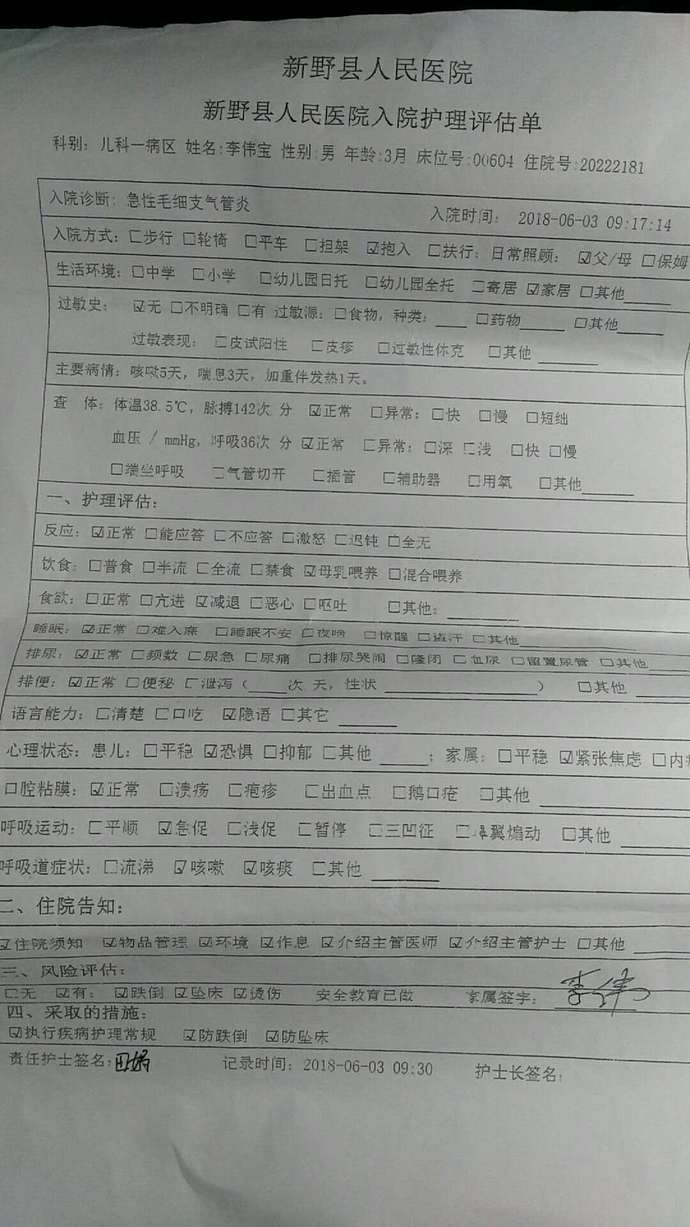 新野县人民医院
新野县人民医院入院护理评估单
科别: 儿科一病区 姓名:李伟宝 性别:男 年龄:3月 床位号:00604 住院号:20222181
入院诊断: 急性毛细支气管炎 入院时间: 2018-06-03 09:17:14
入院方式: □步行 □轮椅 □平车 □担架 ☑抱入 □扶行; 日常照顾: ☑父/母 □保姆
生活环境: □中学 □小学 □幼儿园日托 □幼儿园全托 □寄居 ☑家居 □其他____
过敏史: ☑无 □不明确 □有 过敏源: □食物, 种类: ____ □药物____ □其他____
过敏表现: □皮试阳性 □皮疹 □过敏性休克 □其他 ____
主要病情: 咳嗽5天, 喘息3天, 加重伴发热1天。
查 体: 体温38.5℃, 脉搏142次 分 ☑正常 □异常: □快 □慢 □短绌
血压 / mmHg, 呼吸36次 分 ☑正常 □异常: □深 □浅 □快 □慢
□端坐呼吸 □气管切开 □插管 □辅助器 □用氧 □其他____
一、护理评估:
反应: ☑正常 □能应答 □不应答 □激怒 □迟钝 □全无
饮食: □普食 □半流 □全流 □禁食 ☑母乳喂养 □混合喂养
食欲: □正常 □亢进 ☑减退 □恶心 □呕吐 □其他: ____
睡眠: ☑正常 □难入寐 □睡眠不安 □夜啼 □惊醒 □盗汗 □其他____
排尿: ☑正常 □频数 □尿急 □尿痛 □排尿哭闹 □隆闭 □血尿 □留置尿管 □其他____
排便: ☑正常 □便秘 □泄泻 (____次 天, 性状 ____) □其他 ____
语言能力: □清楚 □口吃 ☑隐语 □其它 ____
心理状态: 患儿: □平稳 ☑恐惧 □抑郁 □其他 ____; 家属: □平稳 ☑紧张焦虑 □内
口腔粘膜: ☑正常 □溃疡 □疱疹 □出血点 □鹅口疮 □其他 ____
呼吸运动: □平顺 ☑急促 □浅促 □暂停 □三凹征 □鼻翼煽动 □其他 ____
呼吸道症状: □流涕 ☑咳嗽 ☑咳痰 □其他 ____
二、住院告知:
☑住院须知 ☑物品管理 ☑环境 ☑作息 ☑介绍主管医师 ☑介绍主管护士 □其他 ____
三、风险评估:
□无 ☑有: ☑跌倒 ☑坠床 ☑烫伤 安全教育已做 家属签字: 李伟
四、采取的措施:
☑执行疾病护理常规 ☑防跌倒 ☑防坠床
责任护士签名: 记录时间: 2018-06-03 09:30 护士长签名: